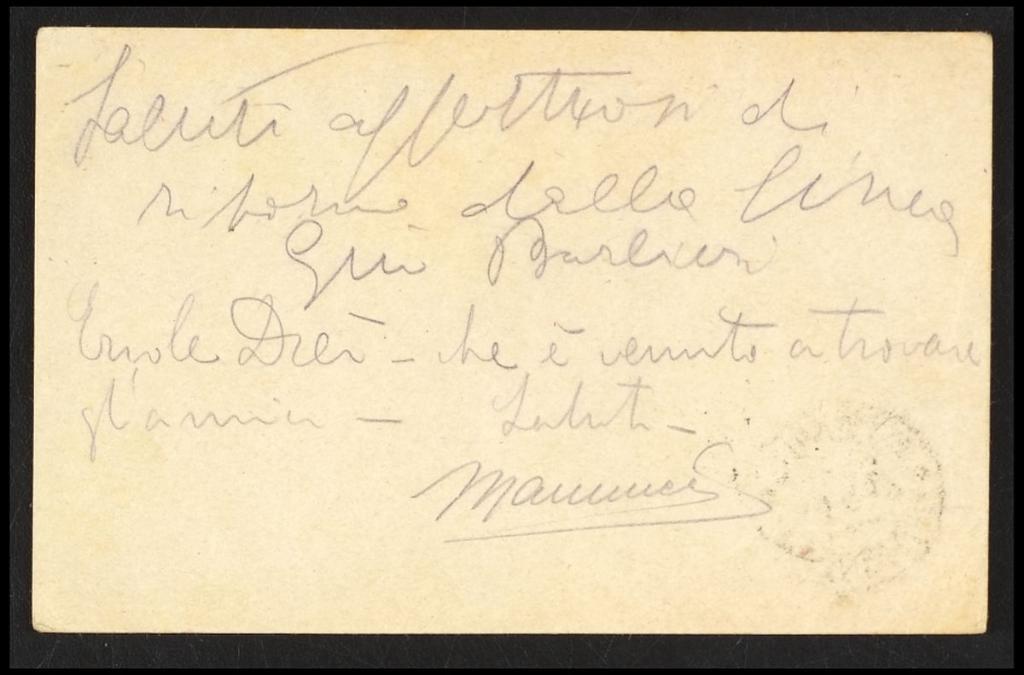 Saluti affettuosi di
ritorno dalla linea
Gino Barbieri
Ercole Drei – che è venuto a trovare
gl'amici – Saluti –